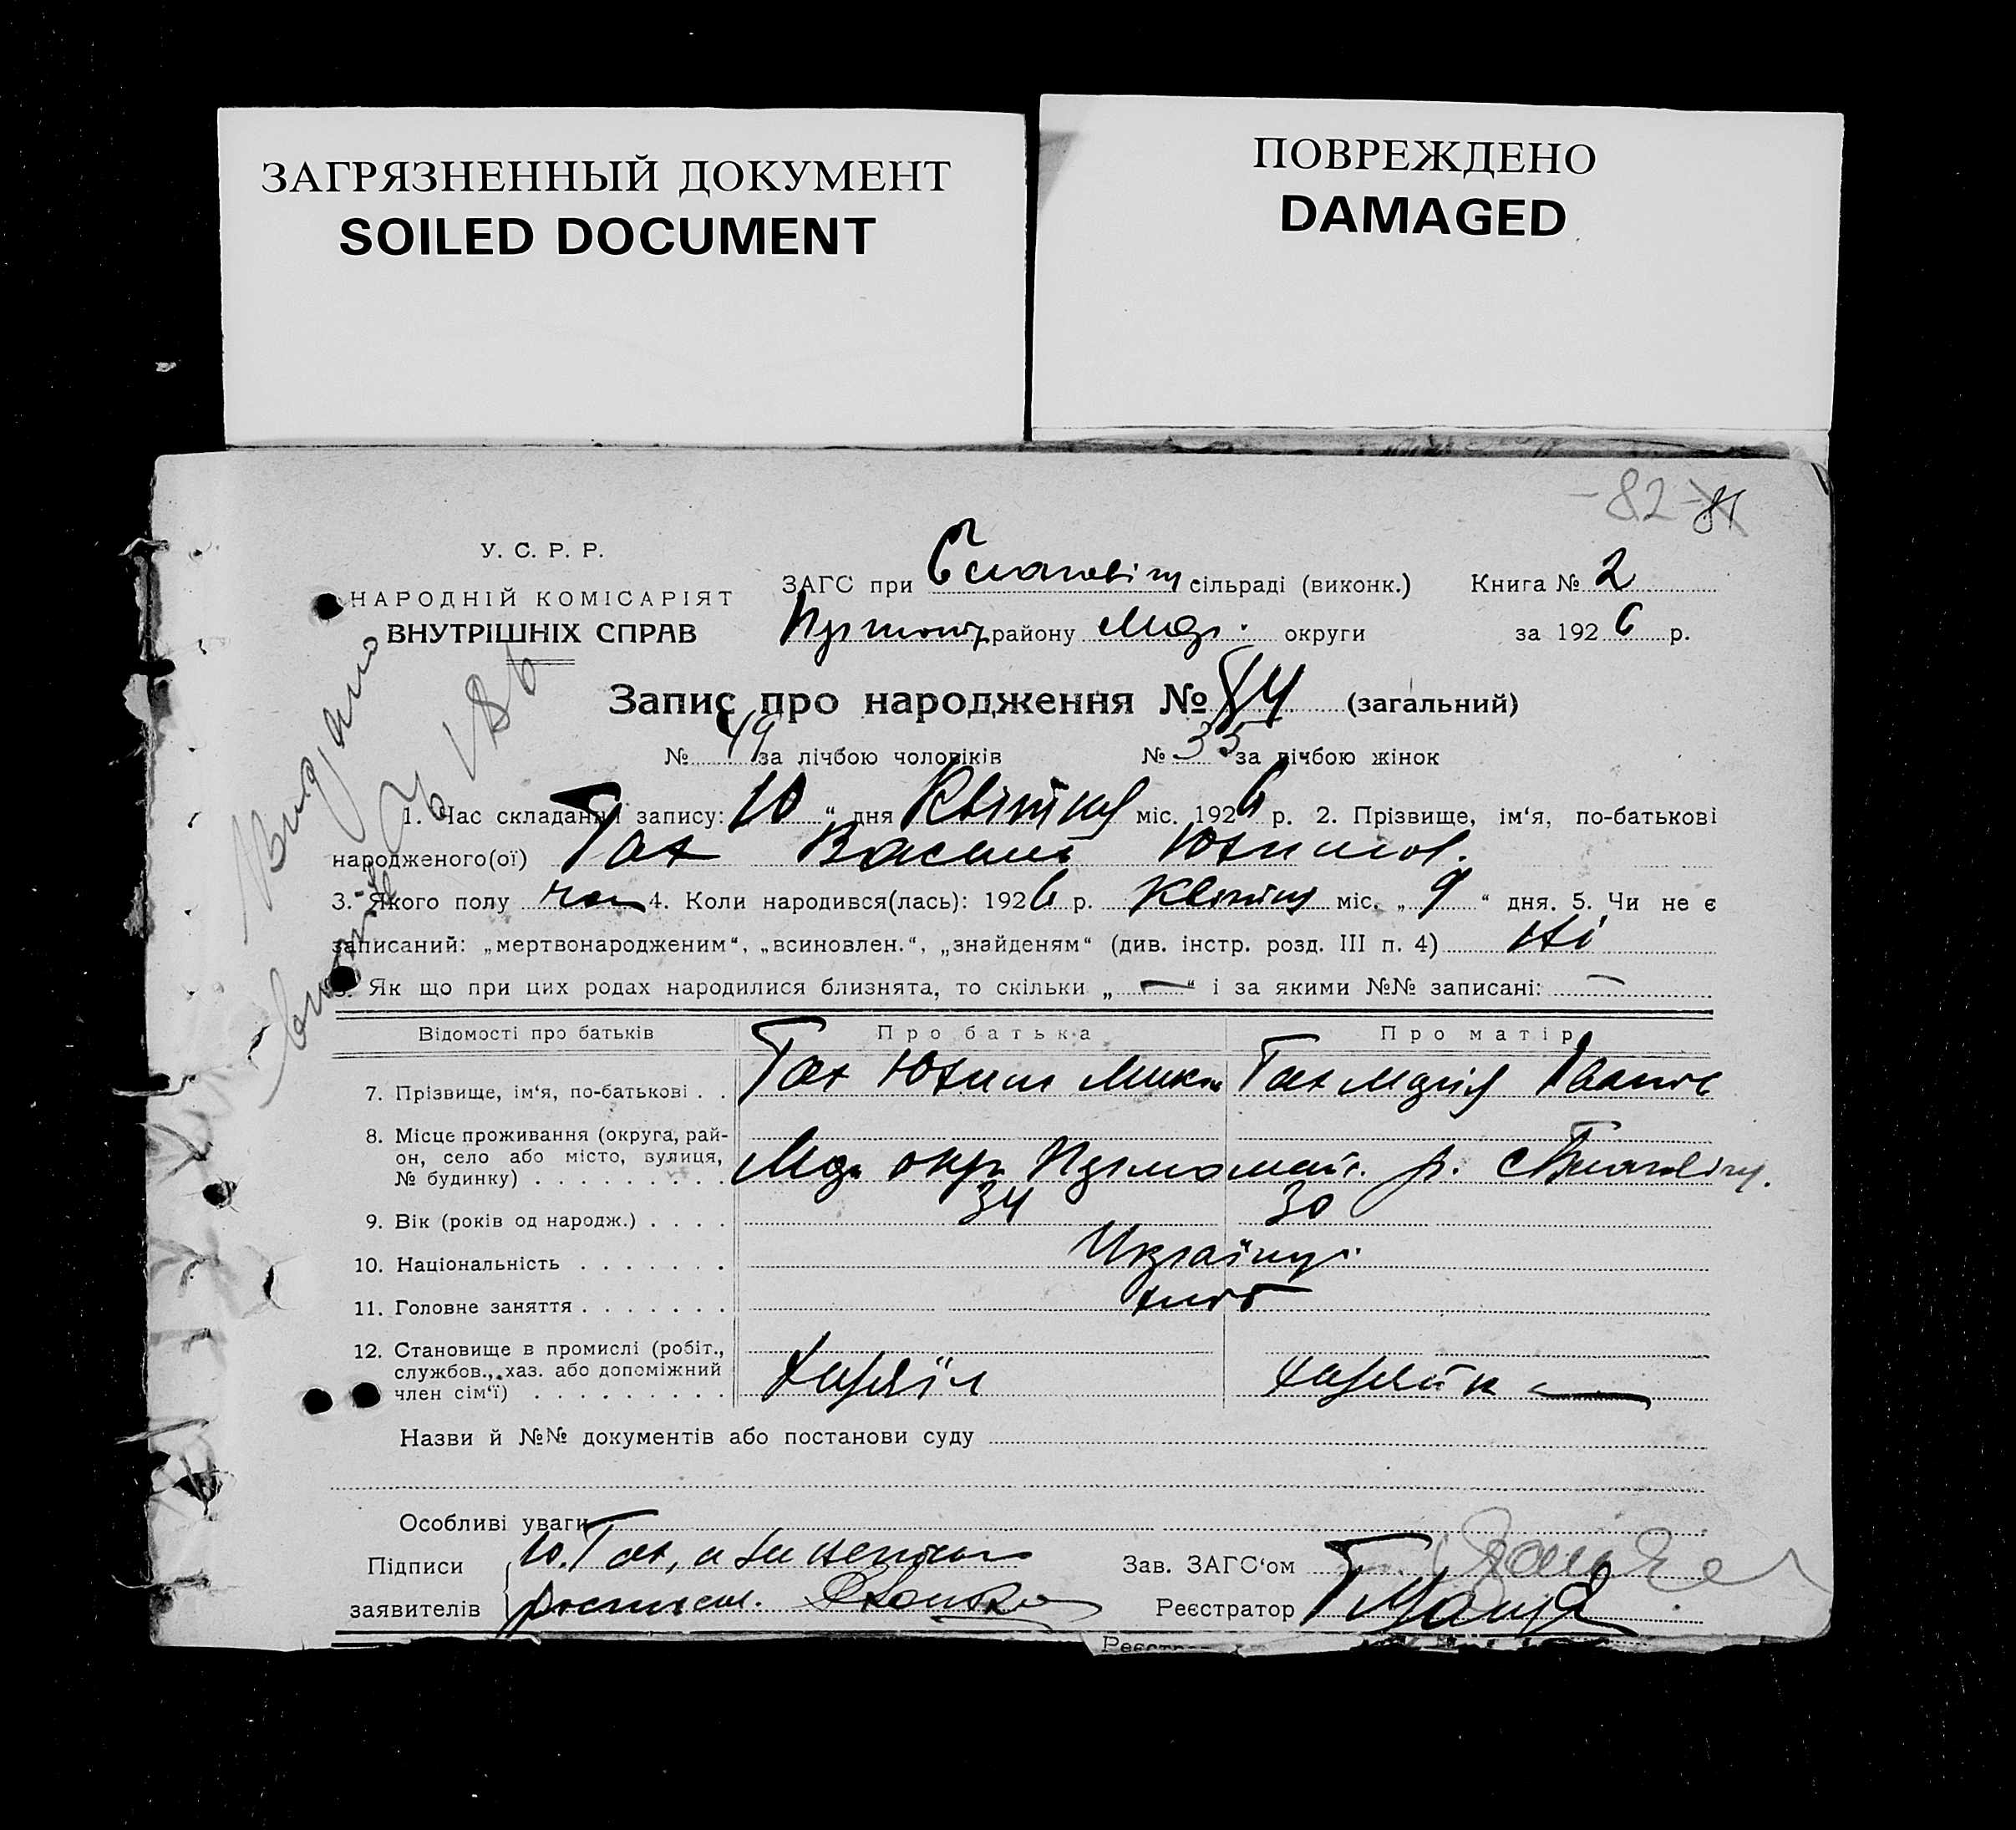 ЗАГРЯЗНЕННЫЙ ДОКУМЕНТ
SOILED DOCUMENT
ПОВРЕЖДЕНО
DAMAGED
-82-
81
У. С. Р. Р.
НАРОДНІЙ КОМІСАРІЯТ
ВНУТРІШНІХ СПРАВ
ЗАГС при сільраді (виконк.) Книга № 2
району округи за 1926 р.
Запис про народження № 84 (загальний)
№ 49 за лічбою чоловіків № 35 за лічбою жінок
1. Час складання запису: 10 “ дня Квітня міс. 1926 р. 2. Прізвище, ім‘я, по-батькові
народженого(ої) Гах Василь Юхимов.
3. Якого полу чол 4. Коли народився(лась): 1926 р. Квітня міс. „ 9 “ дня. 5. Чи не є
записаний: „мертвонародженим“, „всиновлен.“, „знайденям“ (див. інстр. розд. III п. 4) Ні
6. Як що при цих родах народилися близнята, то скільки „ — “ і за якими №№ записані: —
Відомості про батьків Про батька Про матір
7. Прізвище, ім‘я, по-батькові . . Гах Юхим Мик Гах Марія Іванов
8. Місце проживання (округа, рай-
он, село або місто, вулиця,
№ будинку) . . . . . . . . . окр. р.
9. Вік (років од народж.) . . . . 34 30
10. Національність . . . . . . . Українці
11. Головне заняття . . . . . . . хліб
12. Становище в промислі (робіт.,
службов., хаз. або допоміжний
член сім‘ї) . . . . . . . . . хазяїн хазяйка
Назви й №№ документів або постанови суду
Особливі уваги
Підписи Ю. Гах, а за неписьм
заявителів росписи.
Зав. ЗАГС‘ом
Реєстратор